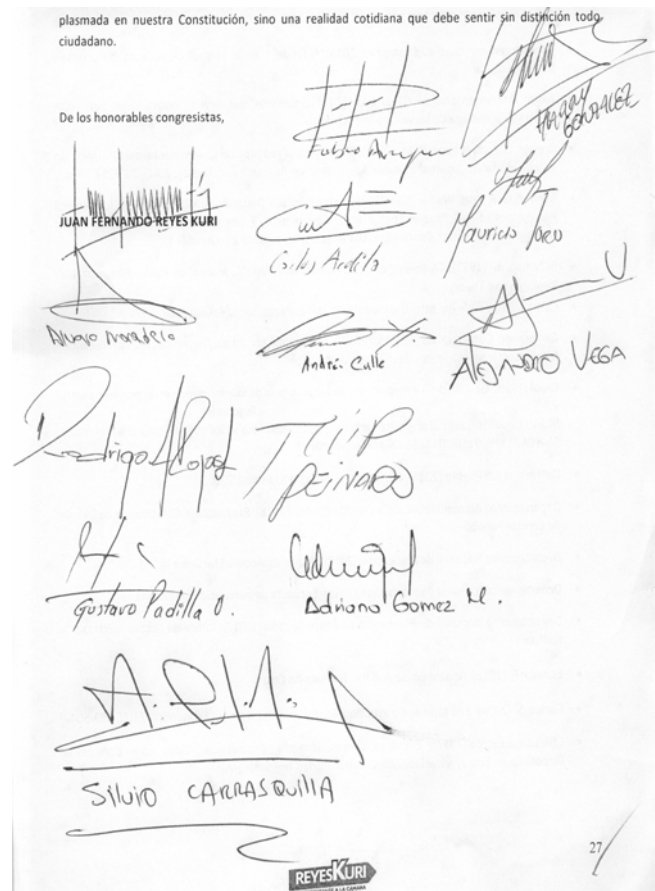 plasmada en nuestra Constitución, sino una realidad cotidiana que debe sentir sin distinción todo
ciudadano.
De los honorables congresistas,
HARRY
GONZALEZ
JUAN FERNANDO REYES KURI
Mauricio Toro
Carlos Ardila
Andrés Calle
ALEJANDRO VEGA
Rodrigo Rojas
PEINADO
Gustavo Padilla O.
Adriana Gomez M.
Silvio CARRASQUILLA
27
REYESKURI